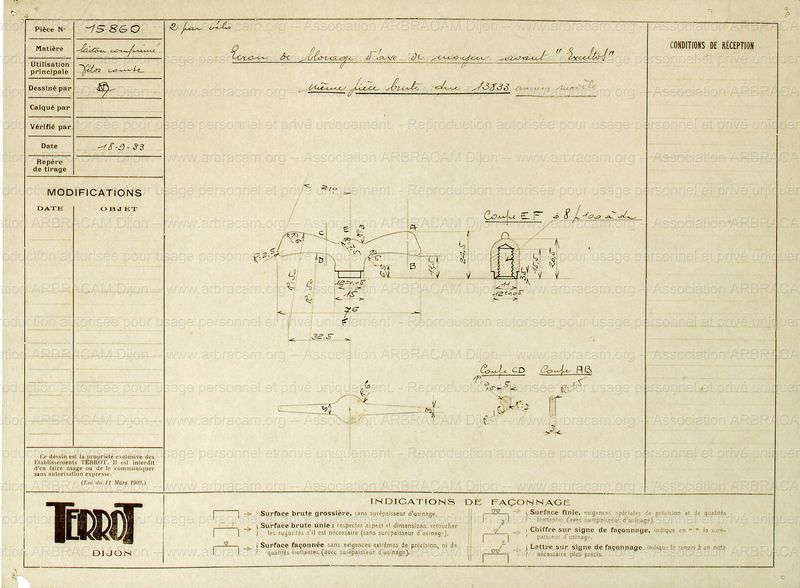 Pièce N° 15860
2 par vélo
Matière laiton comprimé
Utilisation principale Vélos course
Dessiné par
Calqué par
Vérifié par
Date 18-9-33
Repère de tirage
MODIFICATIONS
DATE OBJET
Ecrou de blocage d'axe de moyeu avant "Excelto"
même pièce brute que 13833 ancien modèle
CONDITIONS DE RÉCEPTION
210
C
E
A
D
B
R 2,5
R 50
6,5
14,5
24,5
12±0,05
15
F
76
32,5
Coupe EF
φ 8 p 100 à dr
15,5
20,5
3,5
11
12±0,05
R 6
5
3
Coupe CD Coupe AB
R 1,5
Ce dessin est la propriété exclusive des
Etablissements TERROT. Il est interdit
d'en faire usage ou de le communiquer
sans autorisation expresse.
(Loi du 11 Mars 1902.)
TERROT
DIJON
INDICATIONS DE FAÇONNAGE
Surface brute grossière, sans surépaisseur d'usinage.
Surface brute unie : respecter aspect et dimensions; retoucher
les rugosités s'il est nécessaire (sans surépaisseur d'usinage).
Surface façonnée sans exigences extrêmes de précision, ni de
qualités frottantes (avec surépaisseur d'usinage).
Surface finie, exigences spéciales de précision et de qualités
frottantes (avec surépaisseur d'usinage).
Chiffre sur signe de façonnage, indique en m/m la suré-
paisseur d'usinage.
Lettre sur signe de façonnage, indique le renvoi à un nota
nécessaire plus précis.
www.arbracam.org – Association ARBRACAM Dijon – Reproduction autorisée pour usage personnel et privé uniquement.